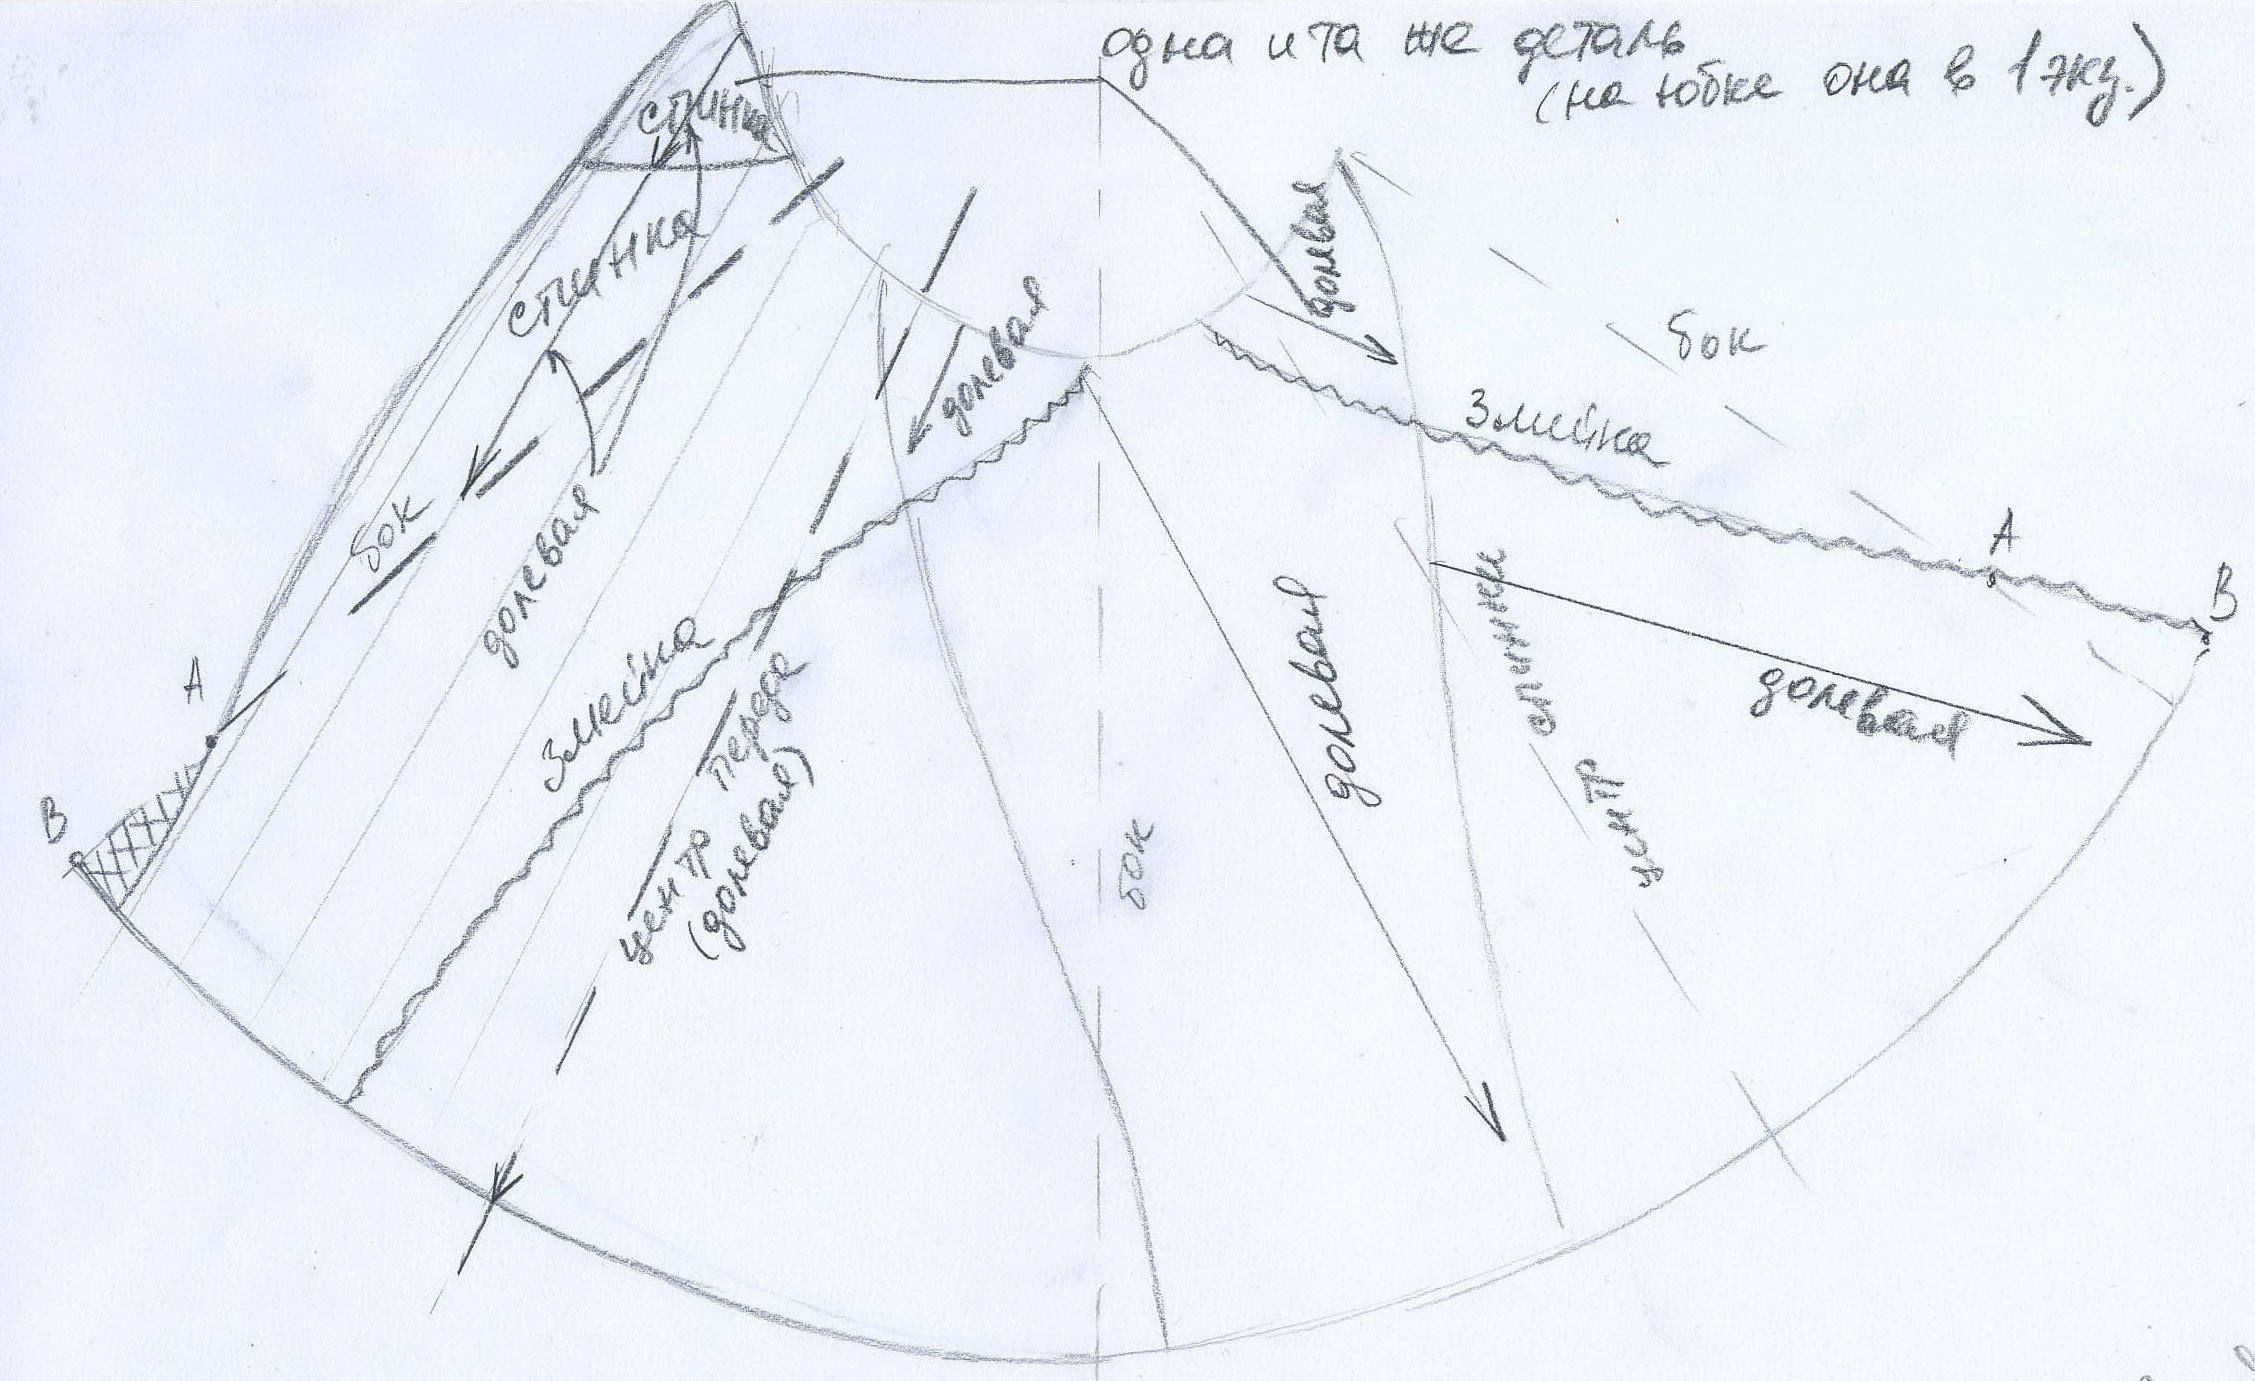 одна и та же деталь
(на юбке она в 1 экз.)
спинка
спинка
долевая
долевая
бок
бок
Змейка
A
B
долевая
A
Змейка
центр переда
(долевая)
B
бок
долевая
центр спинки
долевая